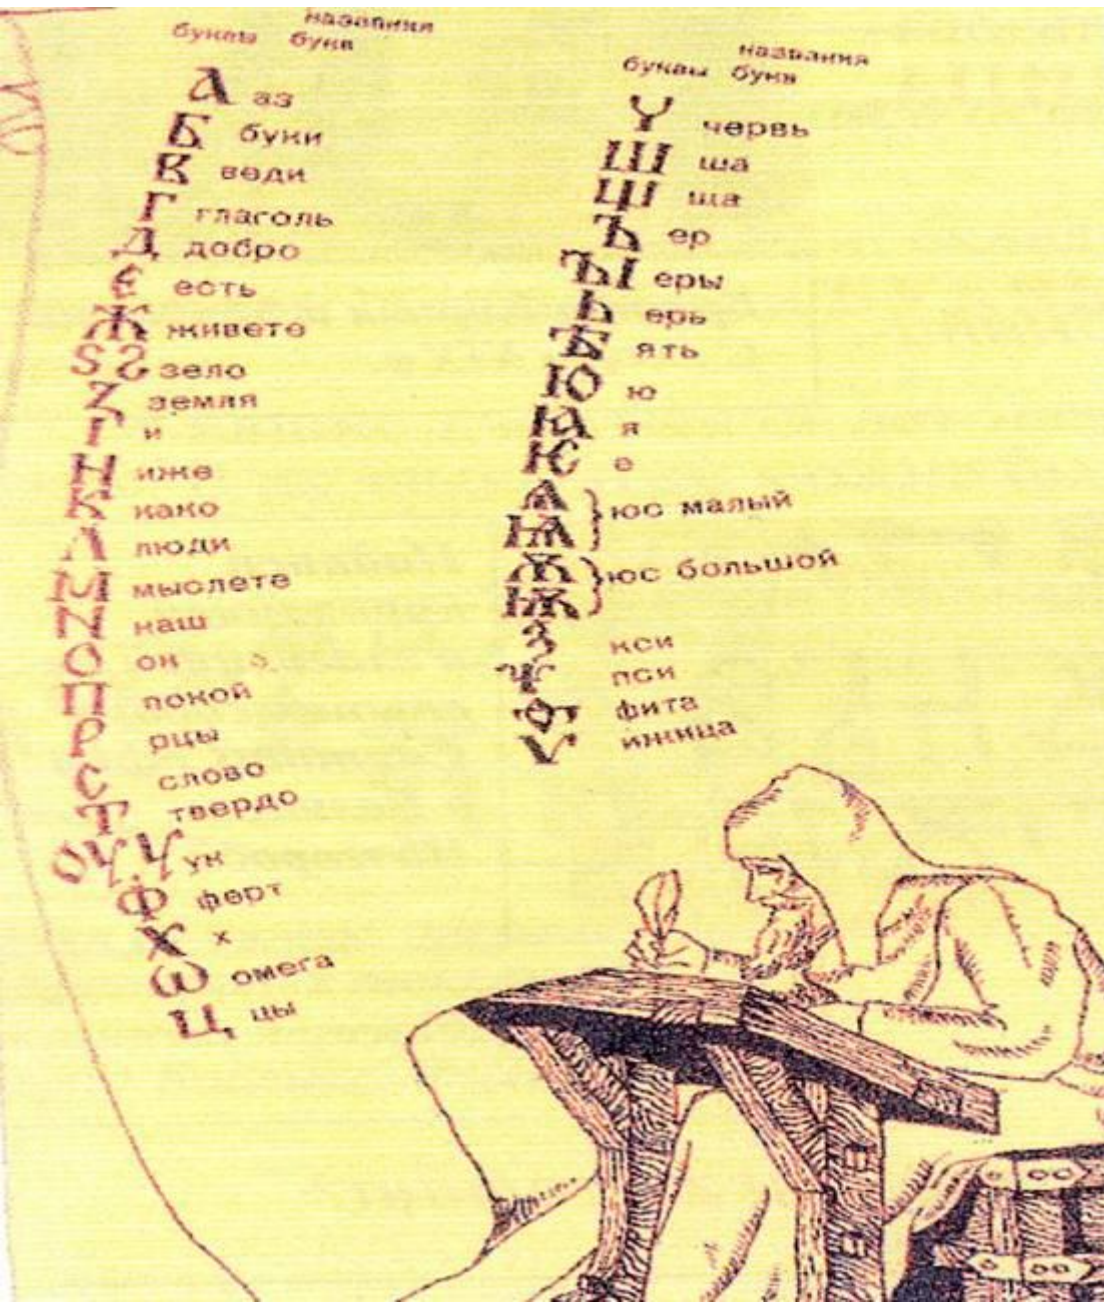 названия
буквы букв
А аз
Б буки
В веди
Г глаголь
Д добро
Є есть
Ж живете
Ѕ Ꙃ зело
З земля
І и
Н иже
К како
Л люди
М мыслете
N наш
О он
П покой
Р рцы
С слово
Т твердо
ОУ Ꙋ ук
Ф ферт
Х х
Ѡ омега
Ц цы
названия
буквы букв
Ч червь
Ш ша
Щ ща
Ъ ер
ЪІ еры
Ь ерь
Ѣ ять
Ю ю
Ꙗ я
Ѥ е
Ѧ
Ѩ } юс малый
Ѫ
Ѭ } юс большой
Ѯ кси
Ѱ пси
Ѳ фита
Ѵ ижица